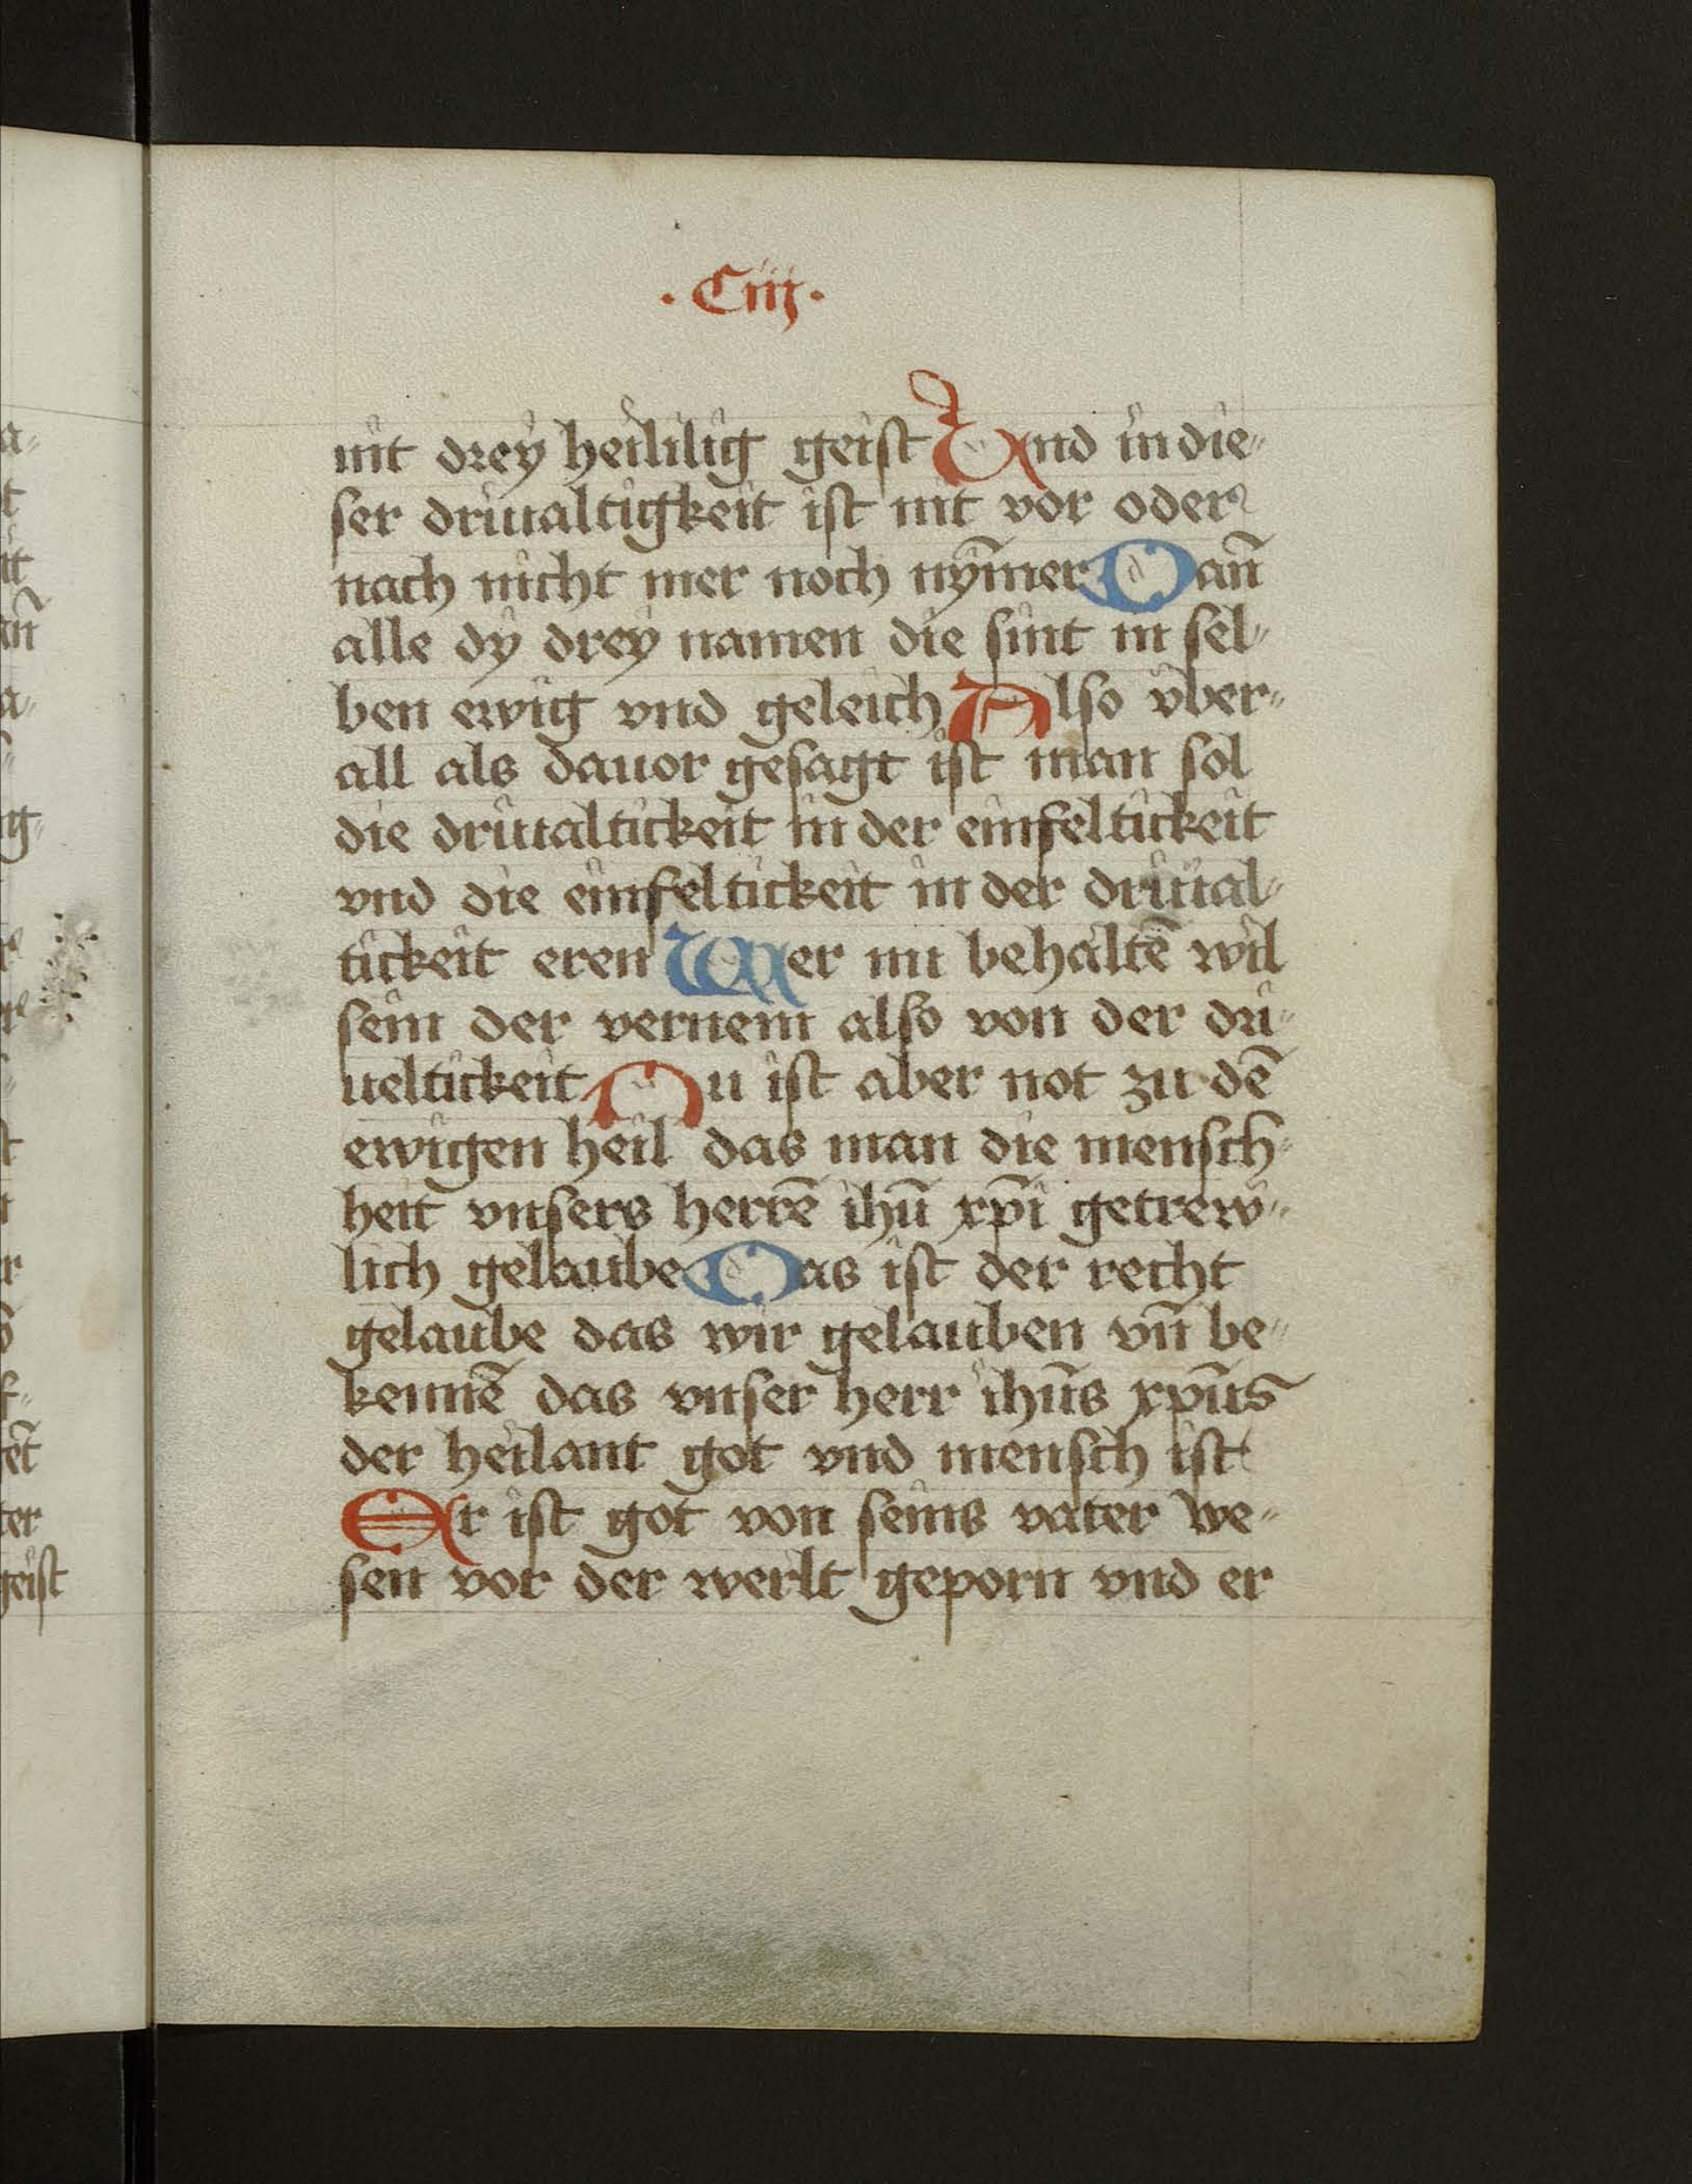 · Ciij ·
nit drey heililig geist Vnd in die=
ser driualtigkeit ist nit vor oder
nach nicht mer noch nÿm̄er Dan̄
alle dy drey namen die sint in sel=
ben ewig vnd geleich Also vber=
all als dauor gesagt ist man sol
die driualtickeit in der einfeltickeit
vnd die einfeltickeit in der driual=
tickeit eren Wer nu behaltē wil
sein der vernem also von der dri=
ueltickeit Nu ist aber not zu dē
ewigen heil das man die mensch=
heit vnsers herrē ihū xp̄i getrew=
lich gelaube Das ist der recht
gelaube das wir gelauben vn̄ be=
kennē das vnser herr ihūs xp̄us
der heilant got vnd mensch ist
Er ist got von seins vater we=
sen vor der werlt geporn vnd er